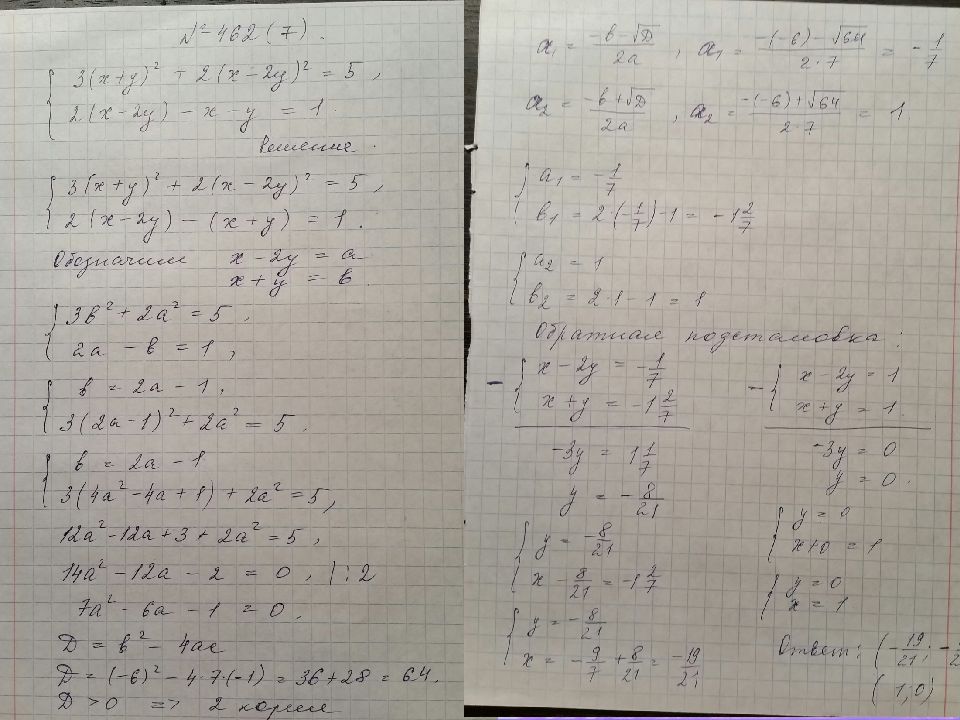 № 462 (7).
{ 3(x+y)² + 2(x-2y)² = 5,
2(x-2y) - x - y = 1.
Решение.
{ 3(x+y)² + 2(x-2y)² = 5,
2(x-2y) - (x+y) = 1.
Обозначим x-2y = a
x+y = b.
{ 3b² + 2a² = 5,
2a - b = 1,
{ b = 2a - 1.
3(2a-1)² + 2a² = 5.
{ b = 2a - 1
3(4a² - 4a + 1) + 2a² = 5,
12a² - 12a + 3 + 2a² = 5,
14a² - 12a - 2 = 0, |:2
7a² - 6a - 1 = 0.
D = b² - 4ac
D = (-6)² - 4·7·(-1) = 36+28 = 64.
D > 0 => 2 корня
a₁ = (-b-√D)/2a, a₁ = (-(-6)-√64)/(2·7) = -1/7
a₂ = (-b+√D)/2a, a₂ = (-(-6)+√64)/(2·7) = 1.
{ a₁ = -1/7
b₁ = 2·(-1/7)-1 = -1 2/7
{ a₂ = 1
b₂ = 2·1 - 1 = 1
Обратная подстановка:
- { x-2y = -1/7
x+y = -1 2/7
-3y = 1 1/7
y = -8/21
{ y = -8/21
x - 8/21 = -1 2/7
{ y = -8/21
x = -9/7 + 8/21 = -19/21
- { x-2y = 1
x+y = 1.
-3y = 0
y = 0.
{ y = 0
x+0 = 1
{ y = 0
x = 1
Ответ: (-19/21; -
(1; 0)